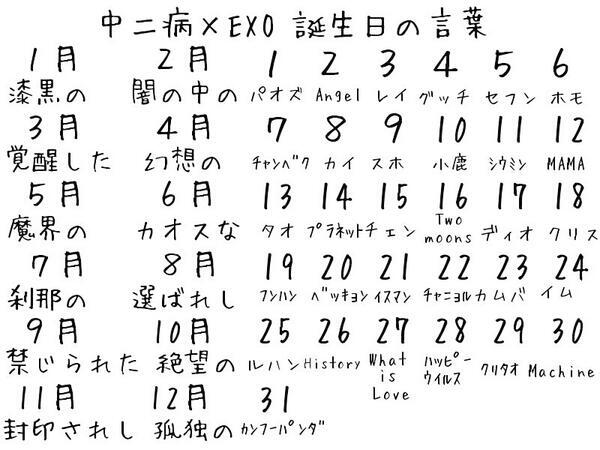 中二病×EXO 誕生日の言葉
1月 2月 1 2 3 4 5 6
漆黒の 闇の中の パオズ Angel レイ グッチ セフン ホモ
3月 4月 7 8 9 10 11 12
覚醒した 幻想の チャンベク カイ スホ 小鹿 シウミン MAMA
5月 6月 13 14 15 16 17 18
魔界の カオスな タオ プラネット チェン Two moons ディオ クリス
7月 8月 19 20 21 22 23 24
刹那の 選ばれし フンハン ベッキョン イスマン チャニョル カムバ イム
9月 10月 25 26 27 28 29 30
禁じられた 絶望の ルハン History What is Love ハッピーウイルス クリタオ Machine
11月 12月 31
封印されし 孤独の カンフーパンダ